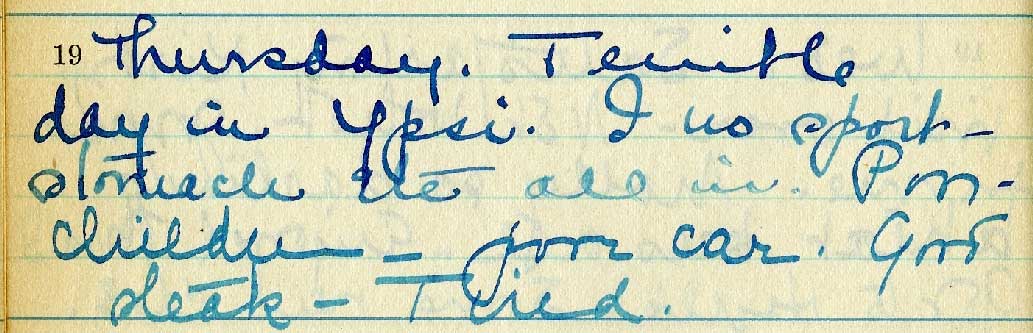 19 Thursday. Terrible
day in Ypsi. I no sport -
stomach etc all in. Poor -
children - poor car. Good
steak - Tired.